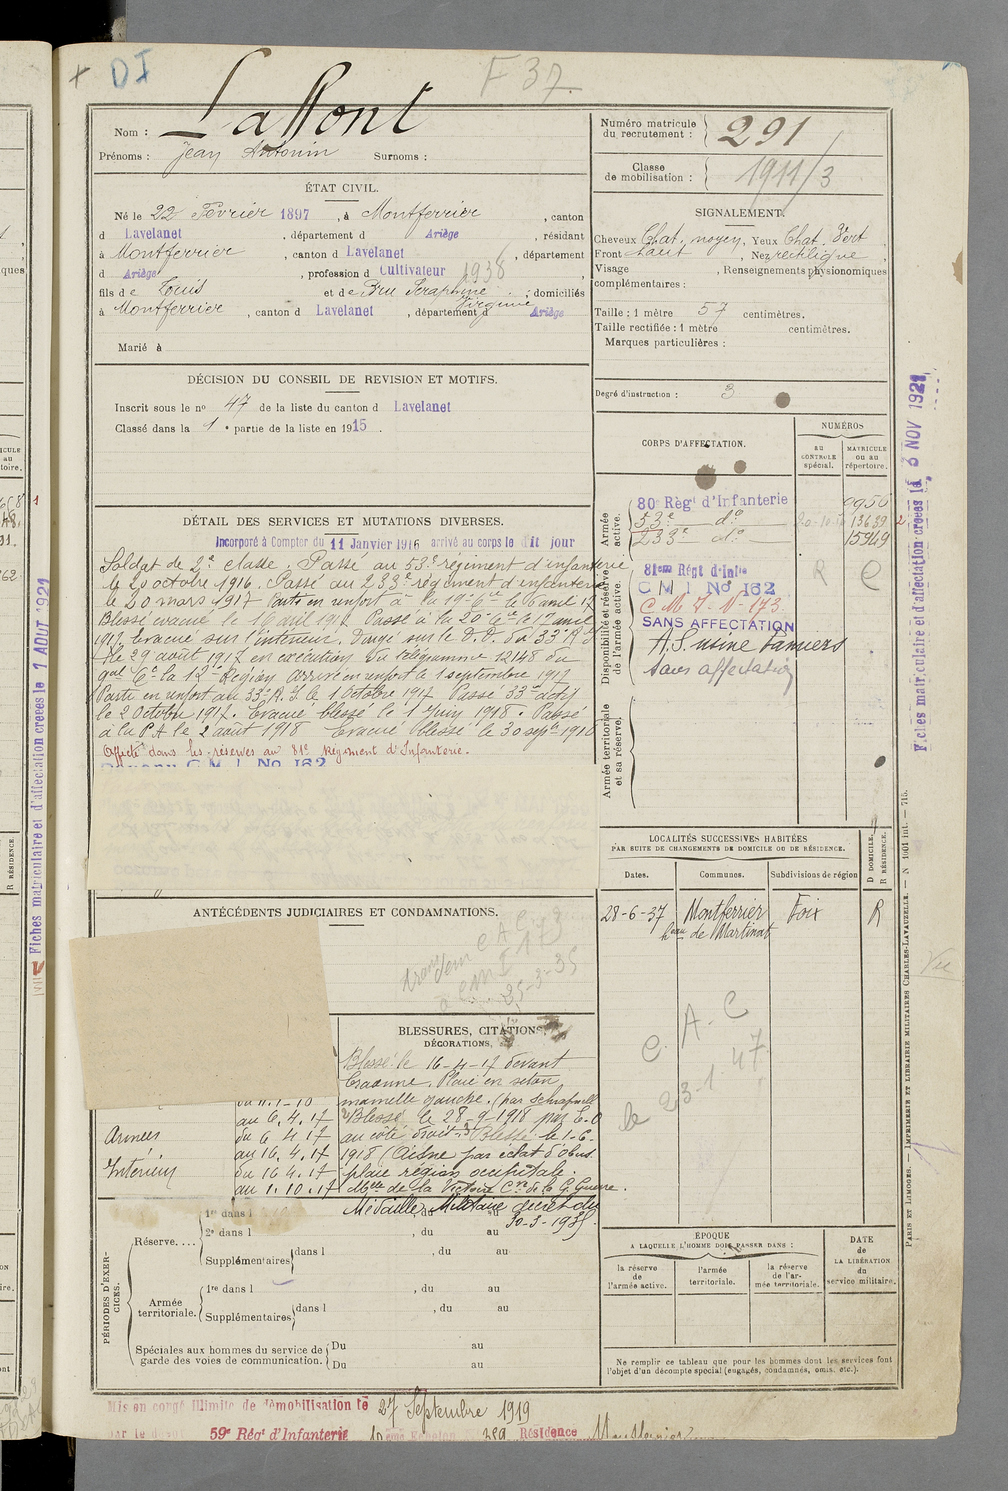 DI
F 37.
Nom : Laffont
Prénoms : Jean Antonin Surnoms :
Numéro matricule du recrutement : 291
Classe de mobilisation : 1911/3
ÉTAT CIVIL.
Né le 22 Février 1897, à Montferrier, canton
d Lavelanet, département d Ariège, résidant
à Montferrier, canton d Lavelanet, département
d Ariège, profession d Cultivateur 1938
fils de Louis et de Bru Seraphine Virginie ; domiciliés
à Montferrier, canton d Lavelanet, département d Ariège
Marié à
SIGNALEMENT.
Cheveux Chat. moyen, Yeux Chat. Vert
Front haut, Nez rectiligne,
Visage , Renseignements physionomiques
complémentaires :
Taille : 1 mètre 57 centimètres.
Taille rectifiée : 1 mètre centimètres.
Marques particulières :
Degré d'instruction : 3
DÉCISION DU CONSEIL DE REVISION ET MOTIFS.
Inscrit sous le no 47 de la liste du canton d Lavelanet
Classé dans la 1e partie de la liste en 1915.
DÉTAIL DES SERVICES ET MUTATIONS DIVERSES.
Incorporé à Compter du 11 Janvier 1916 arrivé au corps le dit jour
Soldat de 2e classe. Passé au 53e régiment d'infanterie
le 20 octobre 1916. Passé au 233e régiment d'infanterie
le 20 mars 1917 Parti en renfort à la 19e Cie le 6 avril 17
Blessé évacué le 16 avril 1917 Passé à la 20e Cie le 17 avril
1917. Evacué sur l'intérieur. Dirigé sur le D.D. du 33e R.I
le 29 août 1917 en exécution du télégramme 12148 du
gal Ct la 12e Région arrivé en renfort le 1 septembre 1917
Parti en renfort au 33e R.I le 1 Octobre 1917 Passé 33e actif
le 2 Octobre 1917. Evacué blessé le 1 Juin 1918. Passé
à la P.A le 2 août 1918 Evacué blessé le 30 sept 1918
Affecté dans les réserves au 81e Régiment d'Infanterie.
C M I No 162
CORPS D'AFFECTATION.
NUMÉROS
AU CONTROLE spécial.
MATRICULE ou au répertoire.
Armée active.
80e Régt d'Infanterie 0956
53e do 20-10-16 13639
233e do 15949
Disponibilité et réserve de l'armée active.
81em Régt d'Infie
C M I No 162 R C
C M I. No 173.
SANS AFFECTATION
A.S. usine Pamiers
Sans affectation
Armée territoriale et sa réserve.
LOCALITÉS SUCCESSIVES HABITÉES
PAR SUITE DE CHANGEMENTS DE DOMICILE OU DE RÉSIDENCE.
Dates. Communes. Subdivisions de région
D DOMICILE. R RÉSIDENCE.
28-6-37 Montferrier Foix R
heau de Martinat
C. A. C
le 23-1-47
ANTÉCÉDENTS JUDICIAIRES ET CONDAMNATIONS.
BLESSURES, CITATIONS,
DÉCORATIONS,
Blessé le 16-4-17 devant
Craonne. Plaie en séton
mamelle gauche. (par Schrapnell
Blessé le 28-9-1918 par E.O
au côté droit. Blessé le 1-6-
1918 (Aisne par éclat d'obus
plaie région occipitale.
Mlle de la Victoire Cve de la G. Guerre.
Médaille Militaire décret du
30-3-1935.
au 6.4.17
Armées du 6 4.17
au 16.4.17
Intérieur du 16 4.17
au 1.10.17
PÉRIODES D'EXERCICES.
Réserve....
1re dans l , du au
2e dans l , du au
Supplémentaires dans l , du au
Armée territoriale.
1re dans l , du au
Supplémentaires dans l , du au
Spéciales aux hommes du service de garde des voies de communication.
Du au
Du au
ÉPOQUE
A LAQUELLE L'HOMME DOIT PASSER DANS :
la réserve de l'armée active.
l'armée territoriale.
la réserve de l'armée territoriale.
DATE de LA LIBÉRATION du service militaire.
Ne remplir ce tableau que pour les hommes dont les services font
l'objet d'un décompte spécial (engagés, condamnés, omis, etc.).
Mis en congé illimité de démobilisation le 27 Septembre 1919
59e Régt d'Infanterie Echelon Résidence
Fiches matriculaire et d'affectation créées le 1 AOUT 1921
Fiches matriculaire et d'affectation créées le 3 NOV 1921
PARIS ET LIMOGES. — IMPRIMERIE ET LIBRAIRIE MILITAIRES CHARLES-LAVAUZELLE. — N 1001 int. — 715.
Vu